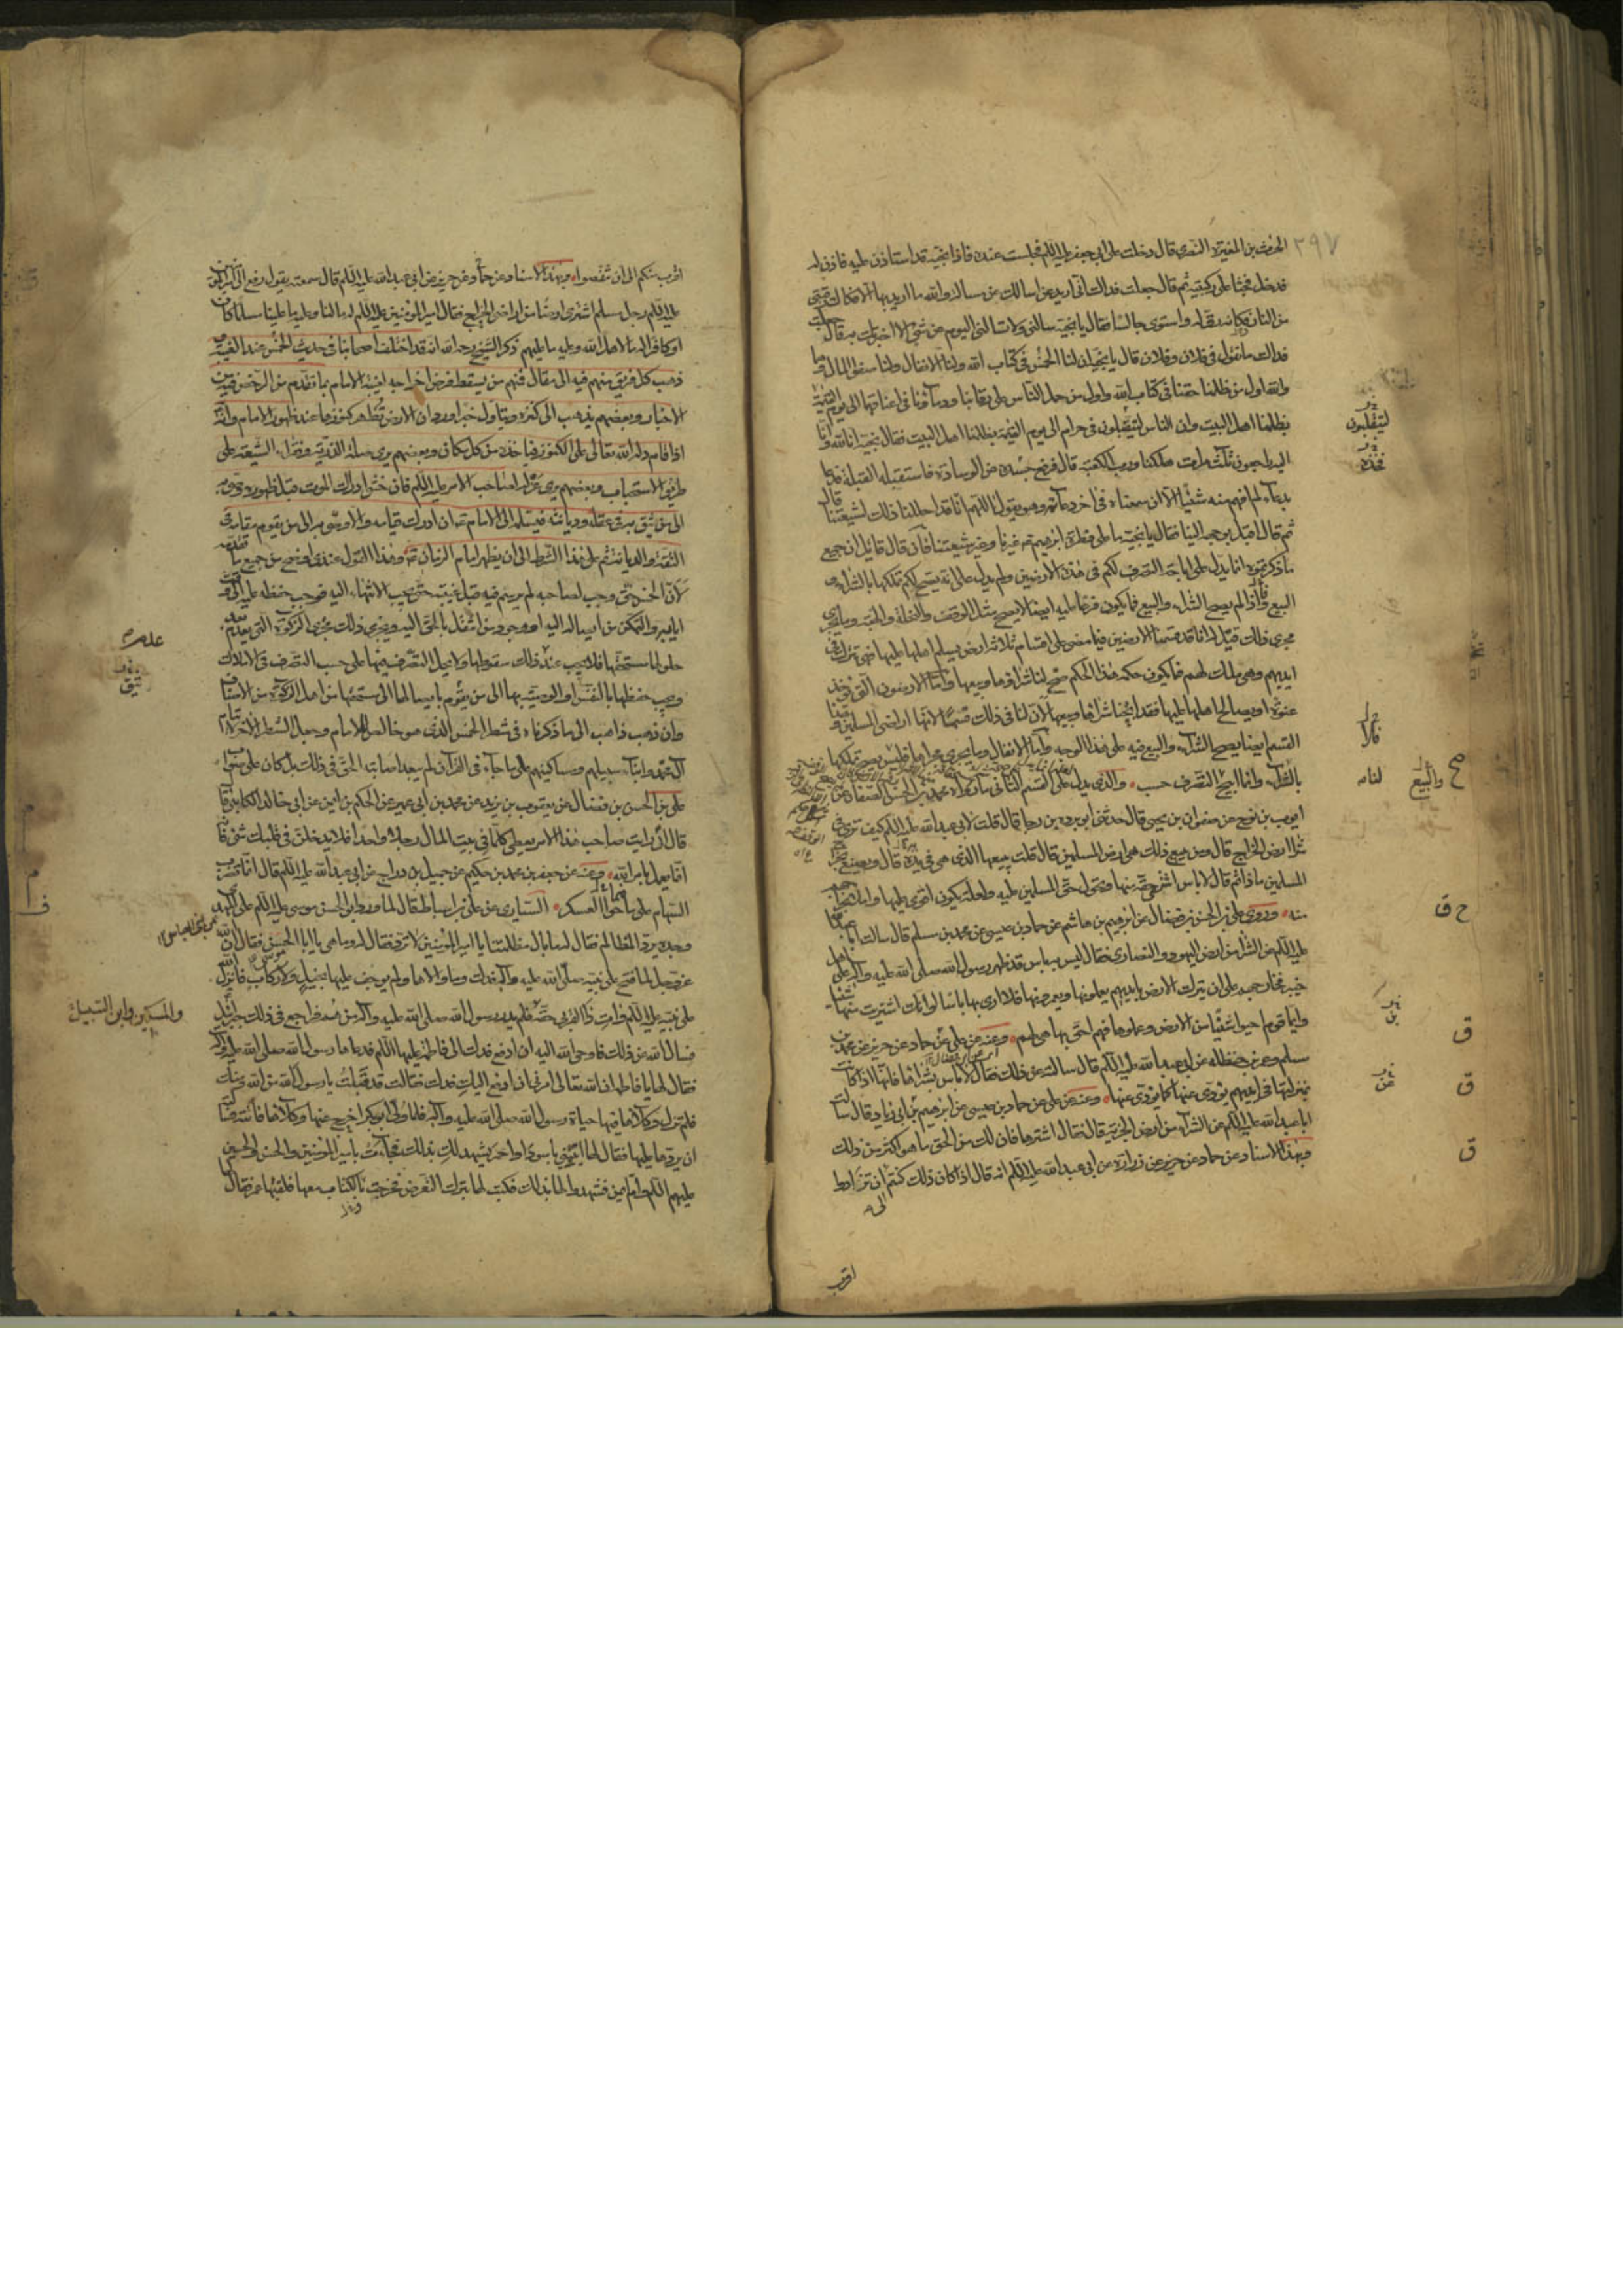 الحرث بن المغيرة النصرى قال دخلت على ابى جعفر عليه السلم فجلست عنده فاذا نجية قد استاذن عليه فاذن له
فدخل فجثا على ركبتيه ثم قال جعلت فداك انى اريد ان اسالك عن مسالة والله ما اريد بها الا فكاك رقبتى
من النار فكانه رق له واستوى جالسا فقال يا نجية سلنى ولا تسالنى اليوم عن شئ الا اخبرتك به قال جعلت
فداك ما تقول فى فلان وفلان قال يا نجية ان لنا الخمس فى كتاب الله ولنا الانفال ولنا صفو المال وهما
والله اول من ظلمنا حقنا فى كتاب الله واول من حمل الناس على رقابنا ودمآؤنا فى اعناقهما الى يوم القيمة
بظلمنا اهل البيت وان الناس ليتقلبون فى حرام الى يوم القيمة بظلمنا اهل البيت فقال نجية انا لله وانا
اليه راجعون ثلث مرات هلكنا ورب الكعبة قال فرفع جسده عن الوسادة فاستقبل القبلة فدعا
بدعآء لم افهم منه شيئا الا انا سمعناه فى اخر دعآئه وهو يقول اللهم انا قد احللنا ذلك لشيعتنا قال
ثم قال اقبل بوجهه الينا فقال يا نجية ما على فطرة ابرهيم غيرنا وغير شيعتنا فان قال قائل ان جميع
ما ذكرتموه انما يدل على اباحة التصرف لكم فى هذه الارضين ولم يدل على انه يصح لكم تملكها بالشرآء و
البيع فاذا لم يصح الشرآء والبيع فما يكون فرعا عليه ايضا لا يصح مثل الوقف والنحلة والهبة وما يجرى
مجرى ذلك قيل له انا قد قسمنا الارضين فيما مضى على اقسام ثلاثة ارض يسلم اهلها عليها فهى تترك فى
ايديهم وهى ملك لهم فما يكون حكمه هذا الحكم صح لنا شراؤها وبيعها واما الارضون التى تؤخذ
عنوة او يصالح اهلها عليها فقد ابحنا شرآءها وبيعها لان لنا فى ذلك قسما لانها اراضى المسلمين وهذا
القسم ايضا يصح الشرآء والبيع فيه على هذا الوجه واما الانفال وما يجرى مجراها فليس يصح تملكها
بالشرآء وانما ابيح التصرف حسب والذى يدل على القسم الثانى ما رواه محمد بن الحسن الصفار عن
ايوب بن نوح عن صفوان بن يحيى قال حدثنى ابو بردة بن رجا قال قلت لابى عبد الله عليه السلم كيف ترى فى
شرا ارض الخراج قال ومن يبيع ذلك هى ارض المسلمين قال قلت يبيعها الذى هى فى يده قال ويصنع بخراج
المسلمين ماذا ثم قال لا باس اشترى حقه منها ويحول حق المسلمين عليه ولعله يكون اقوى عليها واملا بخراجهم
منه وروى على بن الحسن بن فضال عن ابرهيم بن هاشم عن حماد بن عيسى عن محمد بن مسلم قال سالت ابا عبد الله
عليه السلم عن الشرا من ارض اليهود والنصارى فقال ليس به باس قد ظهر رسول الله صلى الله عليه وآله على اهل
خيبر فخارجهم على ان يترك الارض بايديهم يعملونها ويعمرونها فلا ارى بها باسا لو انك اشتريت منها شيئا
وايما قوم احيوا شيئا من الارض وعملوها فهم احق بها وهى لهم وعنه عن على عن حماد عن حريز عن محمد بن
مسلم وعمر بن حنظلة عن ابى عبد الله عليه السلم قال سالته عن ذلك فقال لا باس بشرائها فانها اذا كانت
بمنزلتها فى ايديهم يؤدى عنها كما يؤدى عنها وعنه عن على عن حماد بن عيسى عن ابرهيم بن ابى زياد قال سالت
ابا عبد الله عليه السلم عن الشرآء من ارض الجزية قال فقال اشترها فان لك من الحق ما هو اكثر من ذلك
وبهذا الاسناد عن حماد عن حريز عن زرارة عن ابى عبد الله عليه السلم انه قال اذا كان ذلك كنتم الى ان تزادوا
اقرب
٣٩٧
ليتقلبون
لنا
والبيع
صح
ح ق
ق
ق
ق
اقرب منكم الى ان تنقصوا وبهذا الاسناد عن حماد عن حريز عن ابى عبد الله عليه السلم قال سمعته يقول رفع الى امير المؤمنين
عليه السلم رجل مسلم اشترى ارضا من اراضى الخراج فقال امير المؤمنين عليه السلم له ما لنا وعليه ما علينا مسلما كان
او كافرا له ما لاهل الله وعليه ما عليهم ذكر الشيخ رحمه الله انه قد اختلف اصحابنا فى حديث الخمس عند الغيبة
وذهب كل فريق منهم فيه الى مقال فمنهم من يسقط فرض اخراجه لغيبة الامام بما تقدم من الرخص فيه من
الاخبار وبعضهم يذهب الى كنزه ويتاول خبرا ورد ان الارض تظهر كنوزها عند ظهور الامام وانه
اذا قام دله الله تعالى على الكنوز فياخذه من كل مكان وبعضهم يرى صلة الذرية وفقراء الشيعة على
طريق الاستحباب وبعضهم يرى عزله لصاحب الامر عليه السلم فان خشى ادراك الموت قبل ظهوره وصى به
الى من يثق به فى عقله وديانته فيسلم الى الامام ان ادرك قيامه والا وصى به الى من يقوم مقامه فى
الثقة والديانة ثم على هذا الشرط الى ان يظهر امام الزمان وهذا القول عندى اوضح من جميع ما تقدمه
لان الخمس حق وجب لصاحبه لم يرسم فيه قبل غيبته حتى يجب الانتهاء اليه فوجب حفظه عليه الى وقت
ايابه والتمكن من ايصاله اليه او وجود من انتقل بالحق اليه ويجرى ذلك مجرى الزكوة التى يعدم عند
حلولها مستحقها فلا يجب عند ذلك سقوطها ولا يحل التصرف فيها على حسب التصرف فى الاملاك
ويجب حفظها بالنفس او الوصية بها الى من يقوم بايصالها الى مستحقها من اهل الزكوة من الاصناف
وان ذهب ذاهب الى ما ذكرناه فى شطر الخمس الذى هو خالص للامام وجعل الشطر الاخر لايتام
آل محمد وابنآء سبيلهم ومساكينهم على ما جآء فى القرآن لم يبعد اصابته الحق فى ذلك بل كان على صواب
على بن الحسن بن فضال عن يعقوب بن يزيد عن محمد بن ابى عمير عن الحكم بن ايمن عن ابى خالد الكابلى قال
قال ان رايت صاحب هذا الامر يعطى كلما فى بيت المال رجلا واحدا فلا يدخلن فى قلبك شئ فانه
انما يعمل بامر الله وعنه عن جعفر بن محمد بن حكيم عن جميل بن دراج عن ابى عبد الله عليه السلم قال انما تضرب
السهام على ما حوى العسكر السيارى عن على بن اسباط قال لما ورد ابو الحسن موسى عليه السلم على المهدى
وجده يرد المظالم فقال له ما بال مظلمتنا يا امير المؤمنين لا ترد فقال له وما هى يا ابا الحسن فقال ان الله
عز وجل لما فتح على نبيه صلى الله عليه وآله فدك وما والاها ولم يوجف عليها بخيل ولا ركاب فانزل الله
على نبيه عليه السلم وآت ذا القربى حقه فلم يدر رسول الله صلى الله عليه وآله من هم فراجع فى ذلك جبرئيل
فسال الله عن ذلك فاوحى الله اليه ان ادفع فدك الى فاطمة عليها السلم فدعاها رسول الله صلى الله عليه وآله
فقال لها يا فاطمة ان الله تعالى امرنى ان ادفع اليك فدك فقالت قد قبلت يا رسول الله من الله ومنك
فلم تزل وكلاؤها فيها حياة رسول الله صلى الله عليه وآله فلما ولى ابو بكر اخرج عنها وكلآءها فاتته فسالته
ان يردها عليها فقال لها ائتينى باسود او احمر يشهد لك بذلك فجآءت بامير المؤمنين والحسن والحسين
عليهم السلم وام ايمن فشهدوا لها بذلك فكتب لها بترك التعرض فخرجت بالكتاب معها فلقيها عمر فقال
والمسكين وابن السبيل